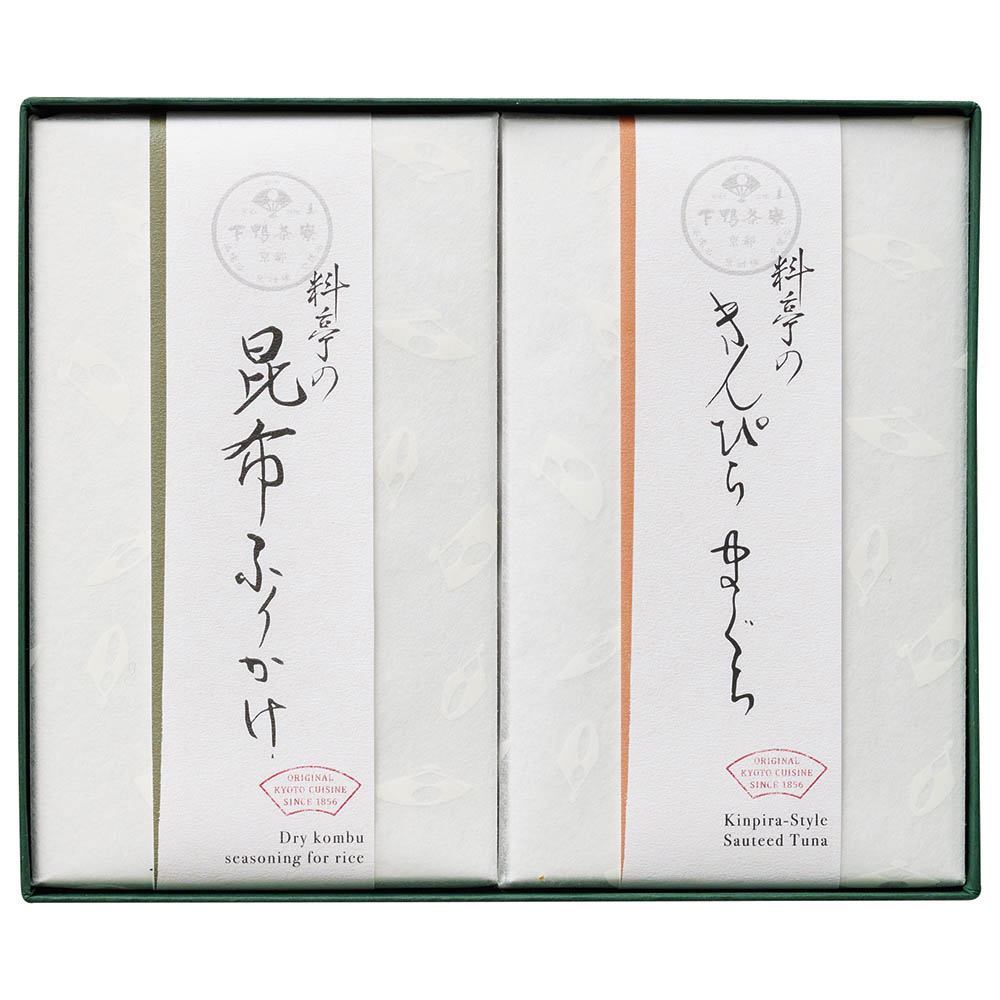 下鴨茶寮
京都
料亭の
昆布ふりかけ
ORIGINAL
KYOTO CUISINE
SINCE 1856
Dry kombu
seasoning for rice
下鴨茶寮
京都
料亭の
きんぴらまぐろ
ORIGINAL
KYOTO CUISINE
SINCE 1856
Kinpira-Style
Sauteed Tuna